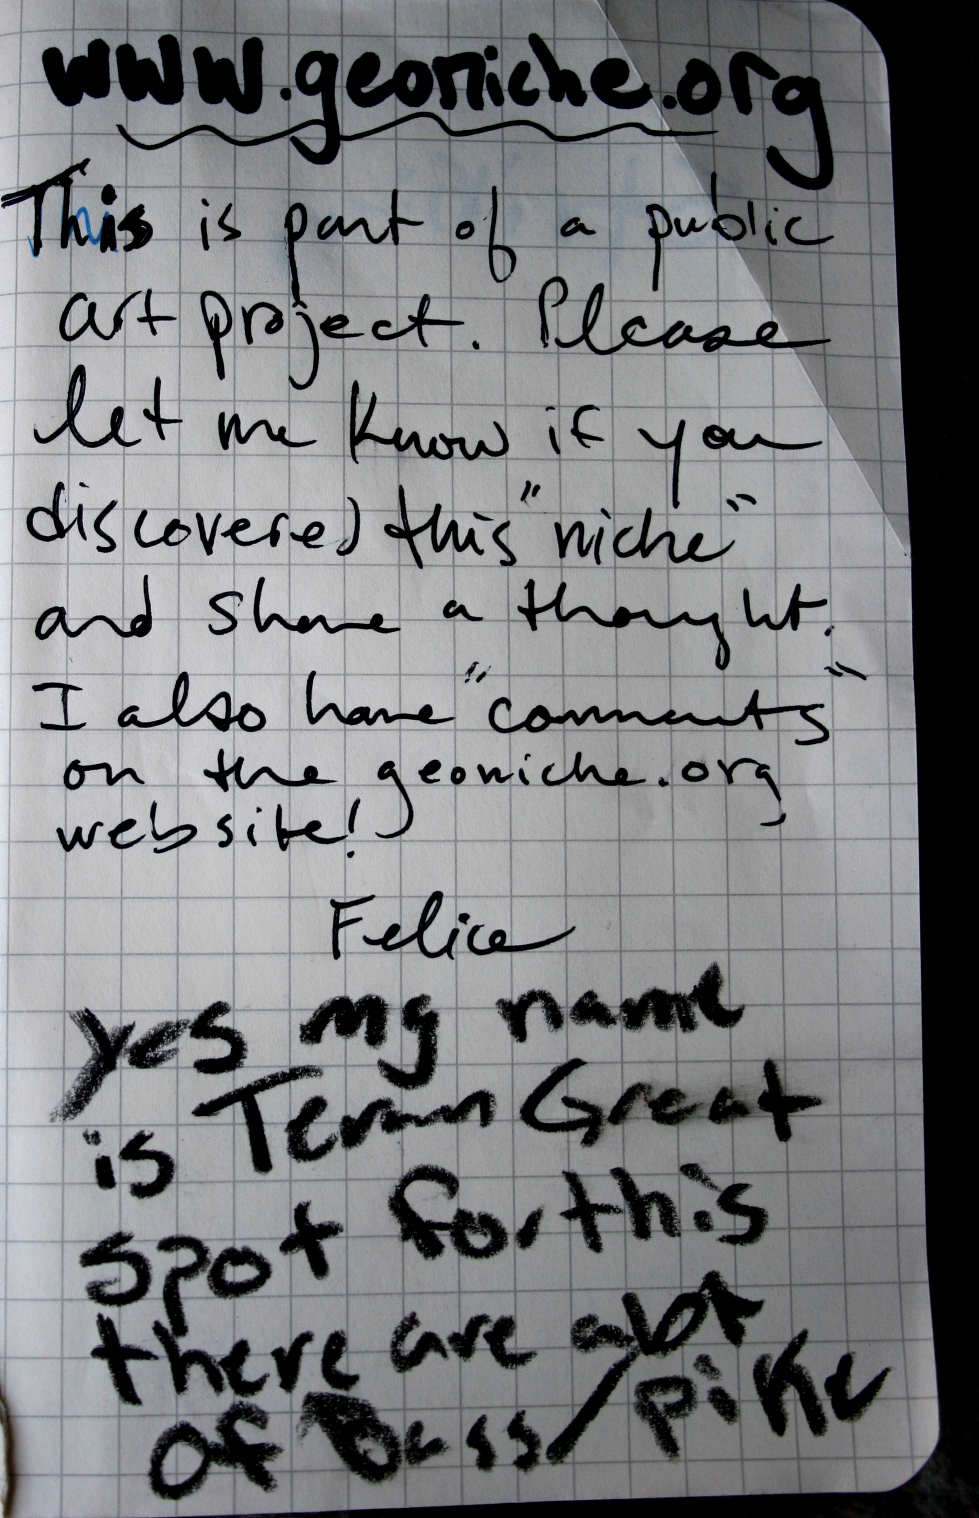 www.geoniche.org
This is part of a public
art project. Please
let me know if you
discovered this "niche"
and share a thought.
I also have "comments"
on the geoniche.org
website!
Felice
yes my name
is Great
spot for this
there are alot
of Bass/pike